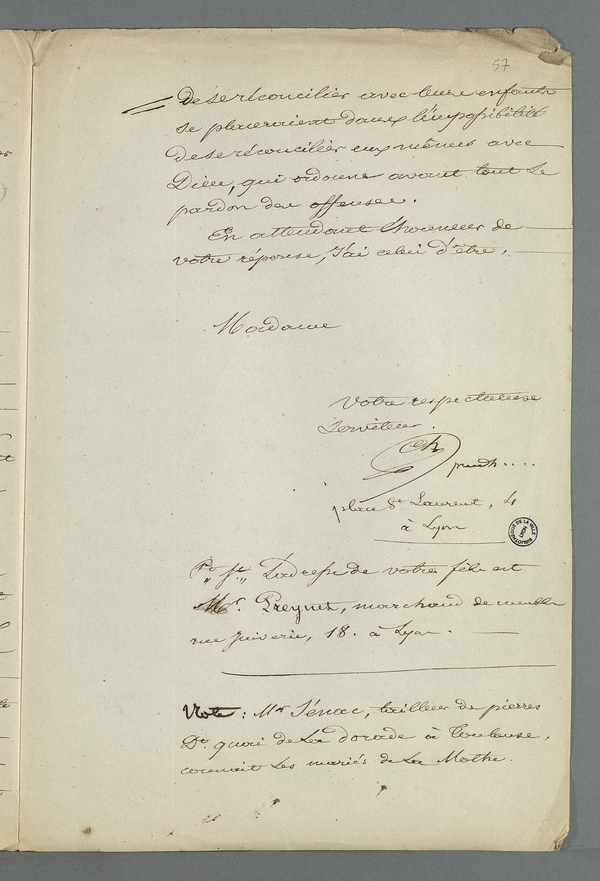 57
de se réconcilier avec leurs enfants
se placeraient dans l'impossibilité
de se réconcilier eux mêmes avec
Dieu, qui ordonne avant tout le
pardon des offenses.
En attendant l'honneur de
votre réponse, j'ai celui d'être,
Madame
Votre respectueux
Serviteur.
Ch
prud h....
place St Laurent, 4
à Lyon
BIBLIOTHEQUE DE LA VILLE LYON
P. St. L'adresse de votre fils est
Mr. Preynet, marchand de meubles
rue Juiverie, 18. à Lyon.
Note: Mr Sénac, tailleur de pierres
Do. quai de la dorade à Toulouse,
connait les mariés de La Mothe.